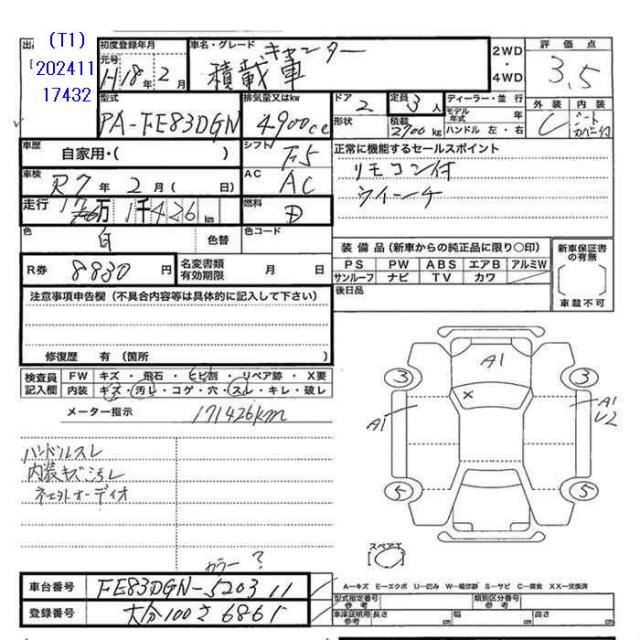 (T1)
202411
17432
初度登録年月
元号
H18年2月
車名・グレード
キャンター
積載車
2WD
・
4WD
評価点
3.5
型式
PA-FE83DGN
排気量又はkw
4900cc
ドア
2
形状
定員
3人
積載
2700kg
ディーラー・並行
モデル年式 年
ハンドル 左・右
外装
内装
C
車歴
自家用・( )
シフト
F5
正常に機能するセールスポイント
リモコン付
ウィーンチ
車検
R7年2月( 日)
AC
AC
走行
17万1千426km
燃料
色
白
色替
色コード
装備品(新車からの純正品に限り○印)
PS PW ABS エアB アルミW
サンルーフ ナビ TV カワ
新車保証書の有無
車載不可
後日品
R券
8830円
名変書類有効期限
月 日
注意事項申告欄(不具合内容等は具体的に記入して下さい)
修復歴 有(箇所 )
検査員記入欄
FW キズ・飛石・ヒビ割・リペア跡・X要
内装 キズ・汚レ・コゲ・穴・スレ・キレ・破レ
メーター指示
171426km
ハンドルスレ
内装キズ汚レ
ネェクトオーディオ
A1
3
3
A1
A1
U2
5
5
スペアT
カラー?
車台番号
FE83DGN-520311
登録番号
大分100さ6861
A-キズ E-エクボ U-凹み W-補修跡 S-サビ C-腐食 XX-交換済
型式指定番号
参考
類別区分番号
参考
車庫証明用
参考
長さ
cm
幅
cm
高さ
cm